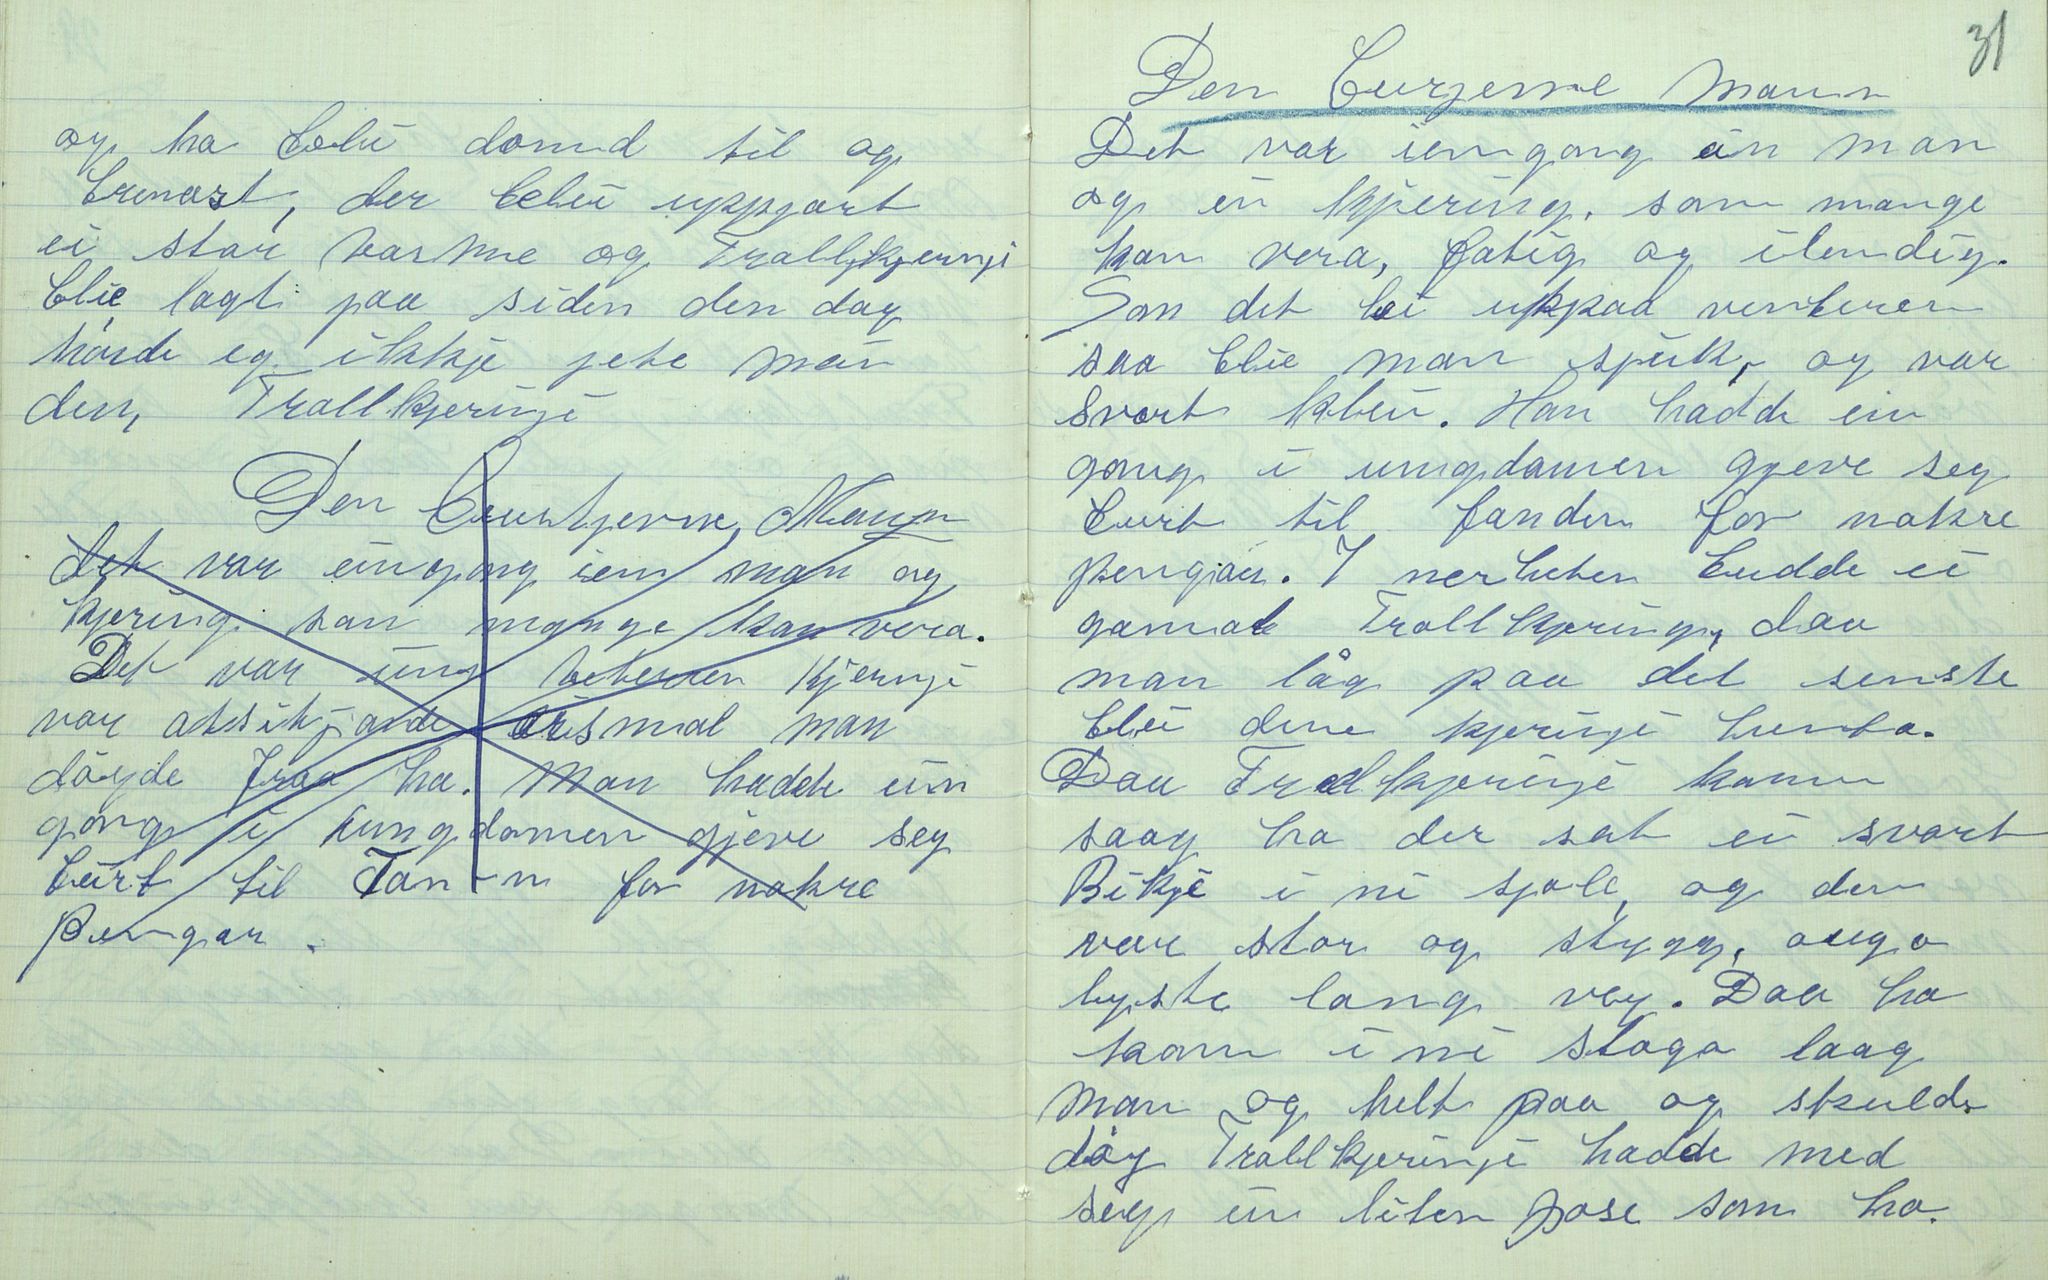 og ha blei dømd til og
brenast, der blei uppgort
ei stor varme og Trollkjeringi
blie lagt paa siden den dag
høirde eg ikkje jete mei
den, Trollkjeringi
Den Burtjevne Mann
det var eingong iem man og
kjering som mange kan vera.
Det var kjeringi
var man
døyde fraa ha. Man hadde ein
gong i ungdomen gjeve seg
burt til Fan-n for nokre
Pengar.
31
Den Burjevne Mann
Det var iemgong ein man
og ei kjering, som mange
kan vera, fatig og ilendig.
Som det lei uppaa venteren
saa blie man sjuk, og var
svort klein. Han hadde ein
gong i ungdomen gjeve seg
burt til fanden for nokre
pengar. I nerheten budde ei
gamal Trollkjering, daa
man låg paa det senste
blei dene kjeringi henta.
Daa Trollkjeringi kom
saag ha der sat ei svart
Bikje i ni sjole, og den
var stor og stygg, augo
lyste lang vey. Daa ha
kom i ni stogo laag
man og helt paa og skulde
døy Trollkjeringi hadde med
seg ein liten pose som ha.